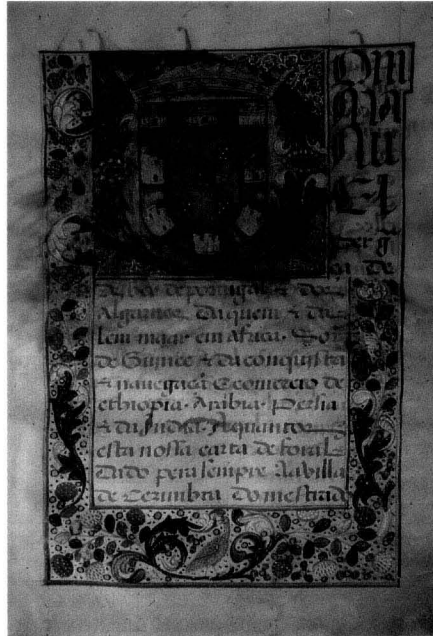 Dom
Manu
El
per g
ra de
deos. Rey de portugal & dos
Algarves. Daquem & da
lem maar em Africa. Sor
de Guinee & da conquista
& navegaçã & comercio de
ethiopia. Arabia. Persia
& da India. A quantos
esta nossa carta de foral
dado pera sempre aa villa
de Cezimbra do mestrado